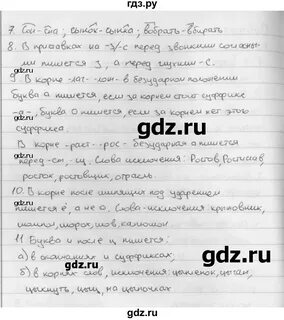 7. Сон-сна, сынок-сынка, вобрать-вбирать
8. В приставках на -з/-с перед звонкими согласны-
ми пишется з, а перед глухими - с.
9. В корне -лаг-лож- в безударном положении
буква а пишется, если за корнем стоит суффикс
-а-, буква о пишется, если за корнем нет этого
суффикса.
В корне -раст-рос- в безударном а пишется
перед -ст, -щ. Слова исключения: Ростов, Ростислав,
росток, ростовщик, отрасль.
10. В корне после шипящих под ударением
пишется ё, а не о. Слова-исключения крыжовник,
шомпол, шорох, шов, капюшон.
11. Буква и после ц пишется:
а) в окончаниях и суффиксах;
б) в корнях слов, исключения: цыпленок, цыган,
цыкнуть, цыц, на цыпочках
gdz.ru
gdz.ru
gdz.ru
gdz.ru